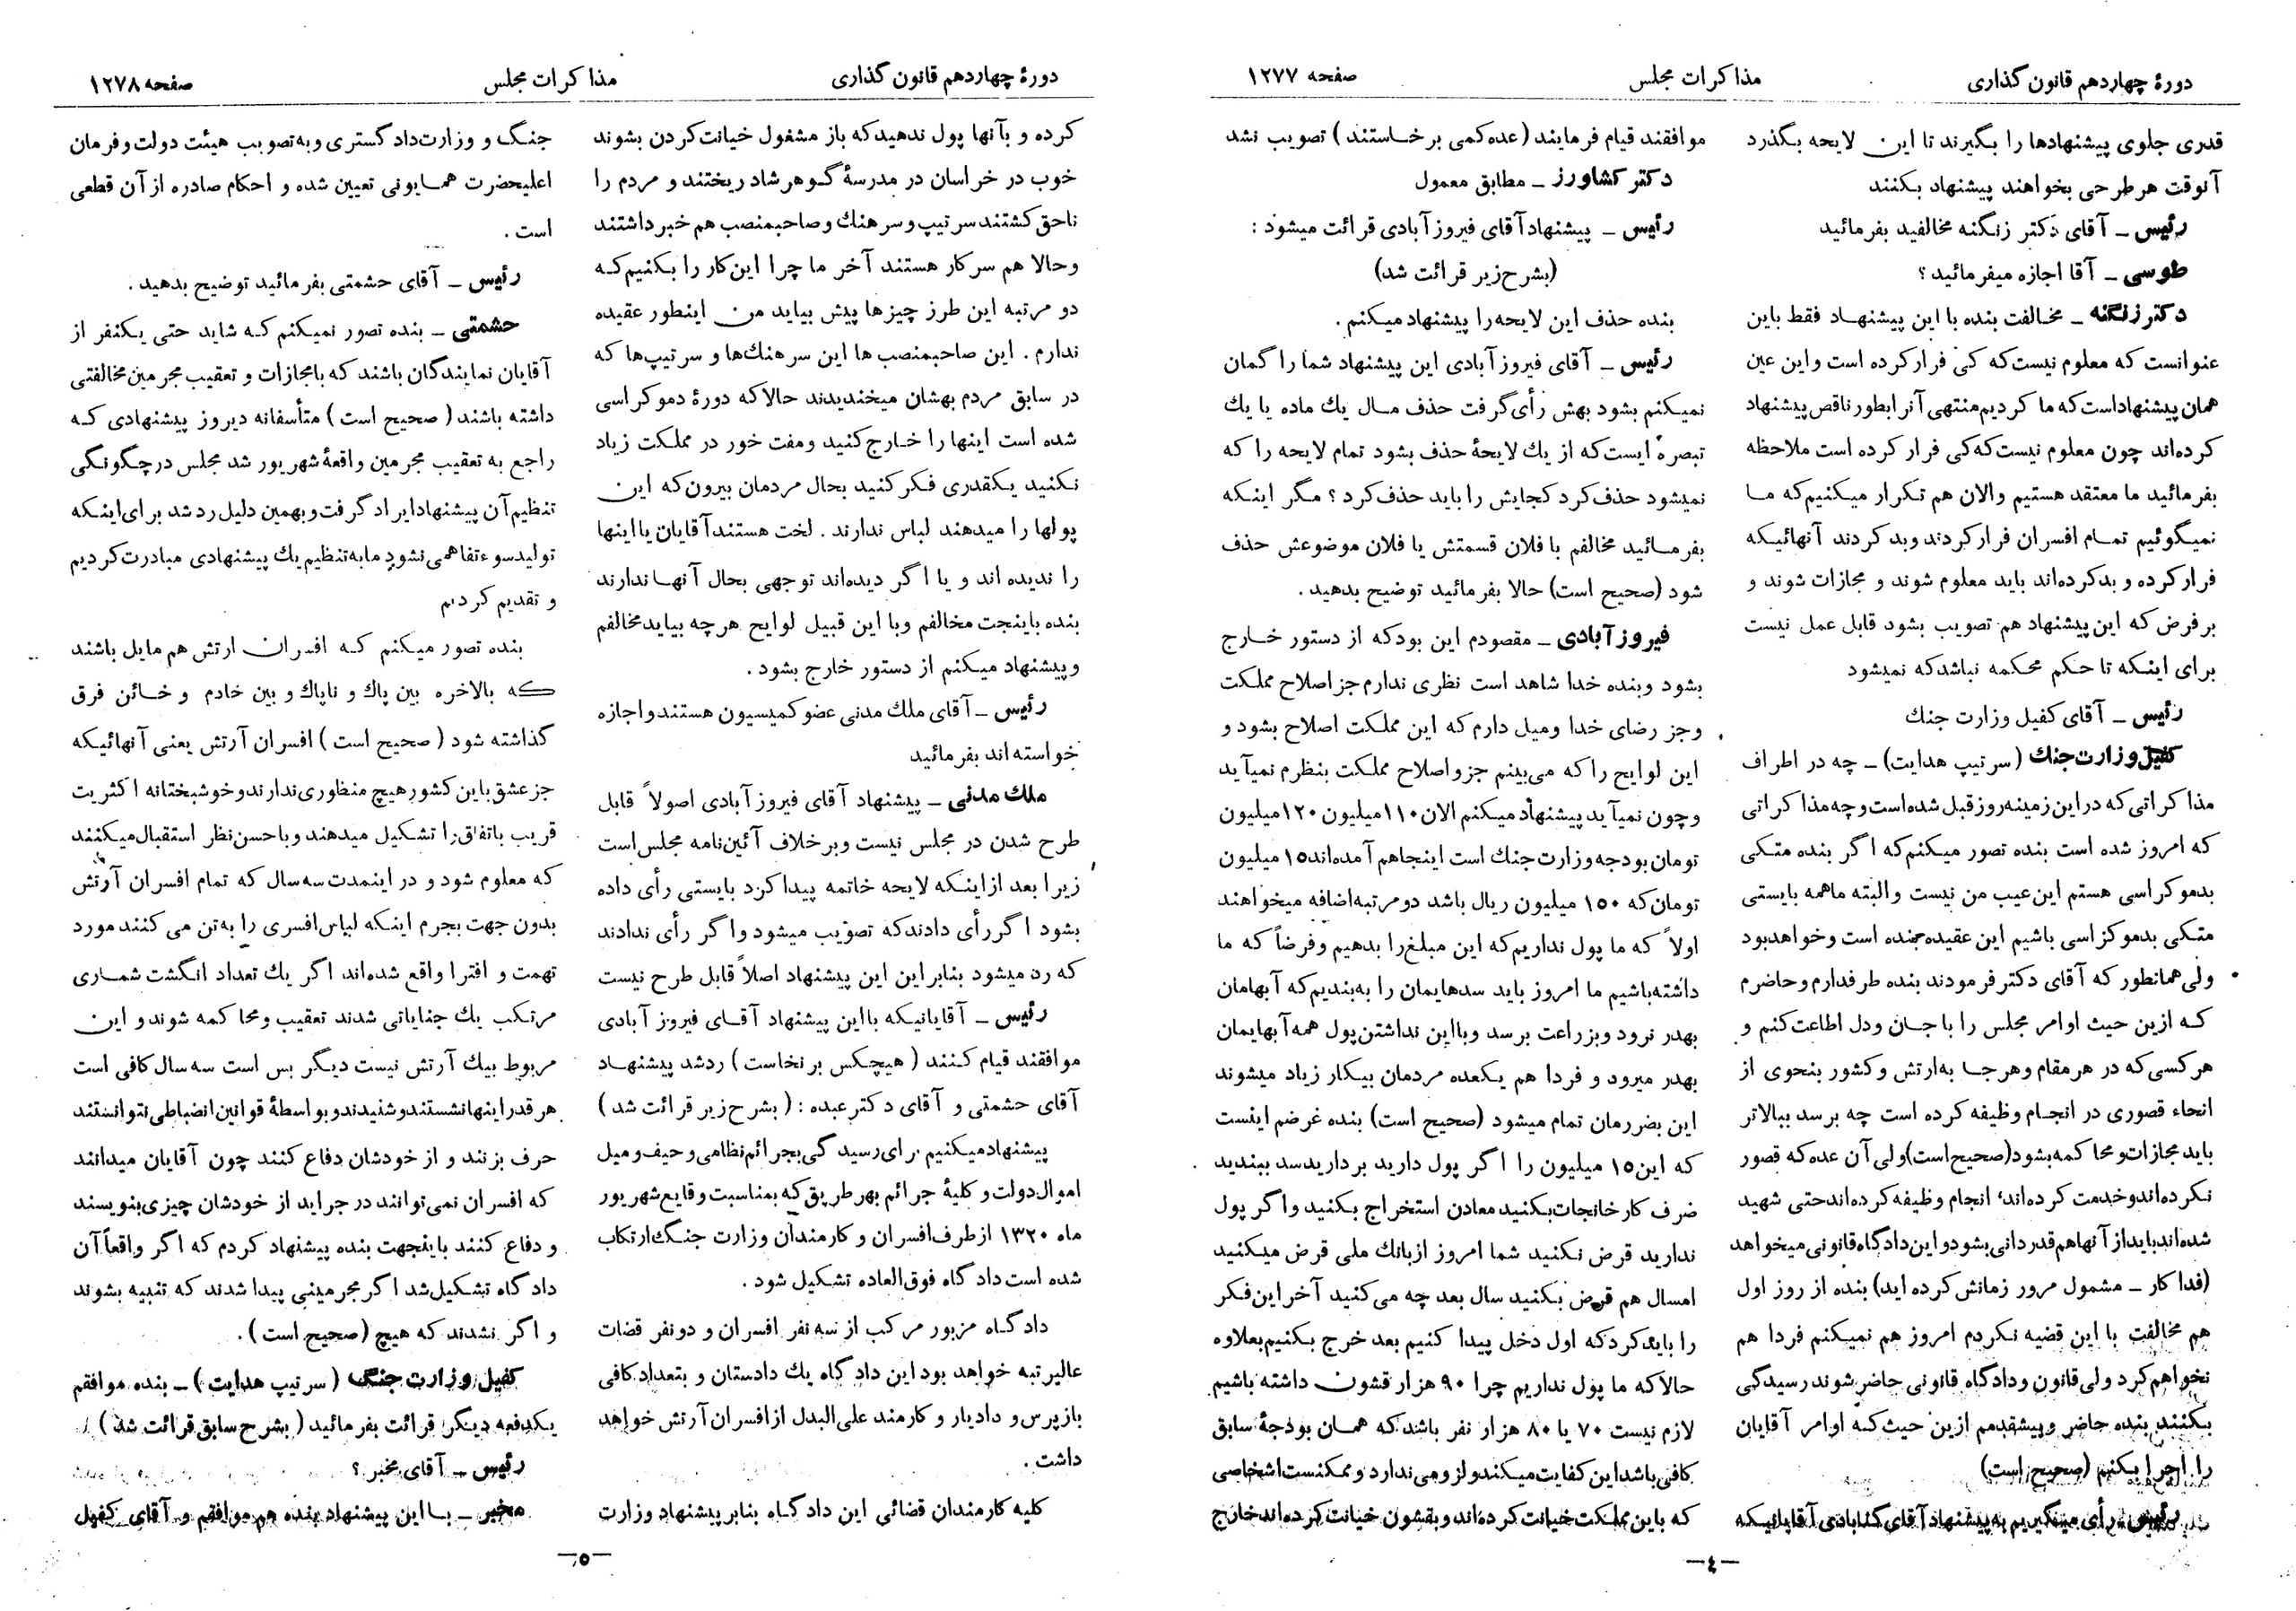 دورهٔ چهاردهم قانون گذاری
مذاکرات مجلس
صفحه ۱۲۷۷
قدری جلوی پیشنهادها را بگیرند تا این لایحه بگذرد
آنوقت هر طرحی بخواهند پیشنهاد بکنند
رئیس ـ آقای دکتر زنگنه مخالفید بفرمائید
طوسی ـ آقا اجازه میفرمائید؟
دکتر زنگنه ـ مخالفت بنده با این پیشنهاد فقط باین
عنوانست که معلوم نیست که کی فرار کرده است و این عین
همان پیشنهاد است که ما کردیم منتهی آنرا بطور ناقص پیشنهاد
کرده‌اند چون معلوم نیست که کی فرار کرده است ملاحظه
بفرمائید ما معتقد هستیم والان هم تکرار میکنیم که ما
نمیگوئیم تمام افسران فرار کردند و بد کردند آنهائیکه
فرار کرده و بد کرده‌اند باید معلوم شوند و مجازات شوند و
بر فرض که این پیشنهاد هم تصویب بشود قابل عمل نیست
برای اینکه تا حکم محکمه نباشد که نمیشود
رئیس ـ آقای کفیل وزارت جنك
کفیل وزارت جنك (سرتیپ هدایت) ـ چه در اطراف
مذاکراتی که در این زمینه روز قبل شده است و چه مذاکراتی
که امروز شده است بنده تصور میکنم که اگر بنده متکی
بدموکراسی هستم این عیب من نیست والبته ما همه بایستی
متکی بدموکراسی باشیم این عقیده بنده است و خواهد بود
ولی همانطور که آقای دکتر فرمودند بنده طرفدارم و حاضرم
که ازین حیث اوامر مجلس را با جان و دل اطاعت کنم و
هر کسی که در هر مقام و هر جا به ارتش و کشور بنحوی از
انحاء قصوری در انجام وظیفه کرده است چه برسد ببالاتر
باید مجازات و محاکمه بشود (صحیح است) ولی آن عده که قصور
نکرده‌اند و خدمت کرده‌اند، انجام وظیفه کرده‌اند حتی شهید
شده‌اند باید از آنها هم قدردانی بشود و این دادگاه قانونی میخواهد
(فداکار ـ مشمول مرور زمانش کرده اید) بنده از روز اول
هم مخالفت با این قضیه نکردم امروز هم نمیکنم فردا هم
نخواهم کرد ولی قانون و دادگاه قانونی حاضر شوند رسیدگی
بکنند بنده حاضر و پیشقدمم ازین حیث که اوامر آقایان
را اجرا بکنم (صحیح است)
رئیس ـ رأی میگیریم به پیشنهاد آقای گنابادی آقایانیکه
موافقند قیام فرمایند (عده کمی برخاستند) تصویب نشد
دکتر کشاورز ـ مطابق معمول
رئیس ـ پیشنهاد آقای فیروز آبادی قرائت میشود :
(بشرح زیر قرائت شد)
بنده حذف این لایحه را پیشنهاد میکنم .
رئیس ـ آقای فیروز آبادی این پیشنهاد شما را گمان
نمیکنم بشود بهش رأی گرفت حذف مال یك ماده یا یك
تبصرهٔ ایست که از یك لایحهٔ حذف بشود تمام لایحه را که
نمیشود حذف کرد کجایش را باید حذف کرد؟ مگر اینکه
بفرمائید مخالفم با فلان قسمتش یا فلان موضوعش حذف
شود (صحیح است) حالا بفرمائید توضیح بدهید .
فیروز آبادی ـ مقصودم این بود که از دستور خارج
بشود و بنده خدا شاهد است نظری ندارم جز اصلاح مملکت
و جز رضای خدا و میل دارم که این مملکت اصلاح بشود و
این لوایح را که می‌بینم جزو اصلاح مملکت بنظرم نمیآید
و چون نمیآید پیشنهاد میکنم الان ۱۱۰ میلیون ۱۲۰ میلیون
تومان بودجه وزارت جنك است اینجا هم آمده‌اند ۱۵ میلیون
تومان که ۱۵۰ میلیون ریال باشد دو مرتبه اضافه میخواهند
اولاً که ما پول نداریم که این مبلغ را بدهیم و فرضاً که ما
داشته باشیم ما امروز باید سدهایمان را به بندیم که آبهامان
بهدر نرود و بزراعت برسد و با این نداشتن پول همه آبهایمان
بهدر میرود و فردا هم یکعده مردمان بیکار زیاد میشوند
این بضررمان تمام میشود (صحیح است) بنده غرضم اینست
که این ۱۵ میلیون را اگر پول دارید بردارید سد ببندید
ضرف کارخانجات بکنید معادن استخراج بکنید واگر پول
ندارید قرض نکنید شما امروز از بانك ملی قرض میکنید
امسال هم قرض بکنید سال بعد چه می‌کنید آخر این فکر
را باید کرد که اول دخل پیدا کنیم بعد خرج بکنیم بعلاوه
حالا که ما پول نداریم چرا ۹۰ هزار قشون داشته باشیم
لازم نیست ۷۰ یا ۸۰ هزار نفر باشد که همان بودجهٔ سابق
کافی باشد این کفایت میکند و لزومی ندارد و ممکنست اشخاصی
که باین مملکت خیانت کرده‌اند و بقشون خیانت کرده‌اند خارج
ـ٤ـ
دورهٔ چهاردهم قانون گذاری
مذاکرات مجلس
صفحه ۱۲۷۸
کرده و بآنها پول ندهید که باز مشغول خیانت کردن بشوند
خوب در خراسان در مدرسهٔ گوهر شاد ریختند و مردم را
ناحق کشتند سرتیپ و سرهنك و صاحبمنصب هم خبر داشتند
و حالا هم سر کار هستند آخر ما چرا این کار را بکنیم که
دو مرتبه این طرز چیزها پیش بیاید من اینطور عقیده
ندارم . این صاحبمنصب ها این سرهنك‌ها و سرتیپ‌ها که
در سابق مردم بهشان میخندیدند حالا که دورهٔ دموکراسی
شده است اینها را خارج کنید و مفت خور در مملکت زیاد
نکنید یکقدری فکر کنید بحال مردمان بیرون که این
پولها را میدهند لباس ندارند . لخت هستند آقایان یا اینها
را ندیده اند و یا اگر دیده‌اند توجهی بحال آنها ندارند
بنده باینجت مخالفم و با این قبیل لوایح هر چه بیاید مخالفم
و پیشنهاد میکنم از دستور خارج بشود .
رئیس ـ آقای ملك مدنی عضو کمیسیون هستند و اجازه
خواسته اند بفرمائید
ملك مدنی ـ پیشنهاد آقای فیروز آبادی اصولاً قابل
طرح شدن در مجلس نیست و بر خلاف آئین‌نامه مجلس است
زیرا بعد از اینکه لایحه خاتمه پیدا کرد بایستی رأی داده
بشود اگر رأی دادند که تصویب میشود و اگر رأی ندادند
که رد میشود بنابر این این پیشنهاد اصلاً قابل طرح نیست
رئیس ـ آقایانیکه با این پیشنهاد آقای فیروز آبادی
موافقند قیام کنند (هیچکس برنخاست) رد شد پیشنهاد
آقای حشمتی و آقای دکتر عبده : (بشرح زیر قرائت شد)
پیشنهاد میکنیم برای رسیدگی بجرائم نظامی و حیف و میل
اموال دولت و کلیهٔ جرائم بهر طریق که بمناسبت وقایع شهریور
ماه ۱۳۲۰ از طرف افسران و کارمندان وزارت جنگ ارتکاب
شده است دادگاه فوق‌العاده تشکیل شود .
دادگاه مزبور مرکب از سه نفر افسران و دو نفر قضات
عالیرتبه خواهد بود این دادگاه یك دادستان و بتعداد کافی
بازپرس و دادیار و کارمند علی‌البدل از افسران آرتش خواهد
داشت .
کلیه کارمندان قضائی این دادگاه بنابر پیشنهاد وزارت
جنگ و وزارت دادگستری و به تصویب هیئت دولت و فرمان
اعلیحضرت همایونی تعیین شده و احکام صادره از آن قطعی
است .
رئیس ـ آقای حشمتی بفرمائید توضیح بدهید .
حشمتی ـ بنده تصور نمیکنم که شاید حتی یکنفر از
آقایان نمایندگان باشند که بامجازات و تعقیب مجرمین مخالفتی
داشته باشند (صحیح است) متأسفانه دیروز پیشنهادی که
راجع به تعقیب مجرمین واقعهٔ شهریور شد مجلس در چگونگی
تنظیم آن پیشنهاد ایراد گرفت و بهمین دلیل رد شد برای اینکه
تولید سوء تفاهمی نشود ما به تنظیم یك پیشنهادی مبادرت کردیم
و تقدیم کردیم
بنده تصور میکنم که افسران ارتش هم مایل باشند
که بالاخره بین پاك و ناپاك و بین خادم و خائن فرق
گذاشته شود (صحیح است) افسران آرتش یعنی آنهائیکه
جز عشق باین کشور هیچ منظوری ندارند و خوشبختانه اکثریت
قریب باتفاق را تشکیل میدهند و با حسن نظر استقبال میکنند
که معلوم شود و در اینمدت سه سال که تمام افسران آرتش
بدون جهت بجرم اینکه لباس افسری را به تن می کنند مورد
تهمت و افترا واقع شده‌اند اگر یك تعداد انگشت شماری
مرتکب یك جنایاتی شدند تعقیب و محاکمه شوند و این
مربوط بیك آرتش نیست دیگر بس است سه سال کافی است
هر قدر اینها نشستند و شنیدند و بواسطهٔ قوانین انضباطی نتوانستند
حرف بزنند و از خودشان دفاع کنند چون آقایان میدانند
که افسران نمی‌توانند در جراید از خودشان چیزی بنویسند
و دفاع کنند باینجهت بنده پیشنهاد کردم که اگر واقعاً آن
دادگاه تشکیل شد اگر مجرمینی پیدا شدند که تنبیه بشوند
و اگر نشدند که هیچ (صحیح است) .
کفیل وزارت جنگ (سرتیپ هدایت) ـ بنده موافقم
یکدفعه دیگر قرائت بفرمائید (بشرح سابق قرائت شد)
رئیس ـ آقای مخبر؟
مخبر ـ با این پیشنهاد بنده هم موافقم و آقای کفیل
ـ٥ـ